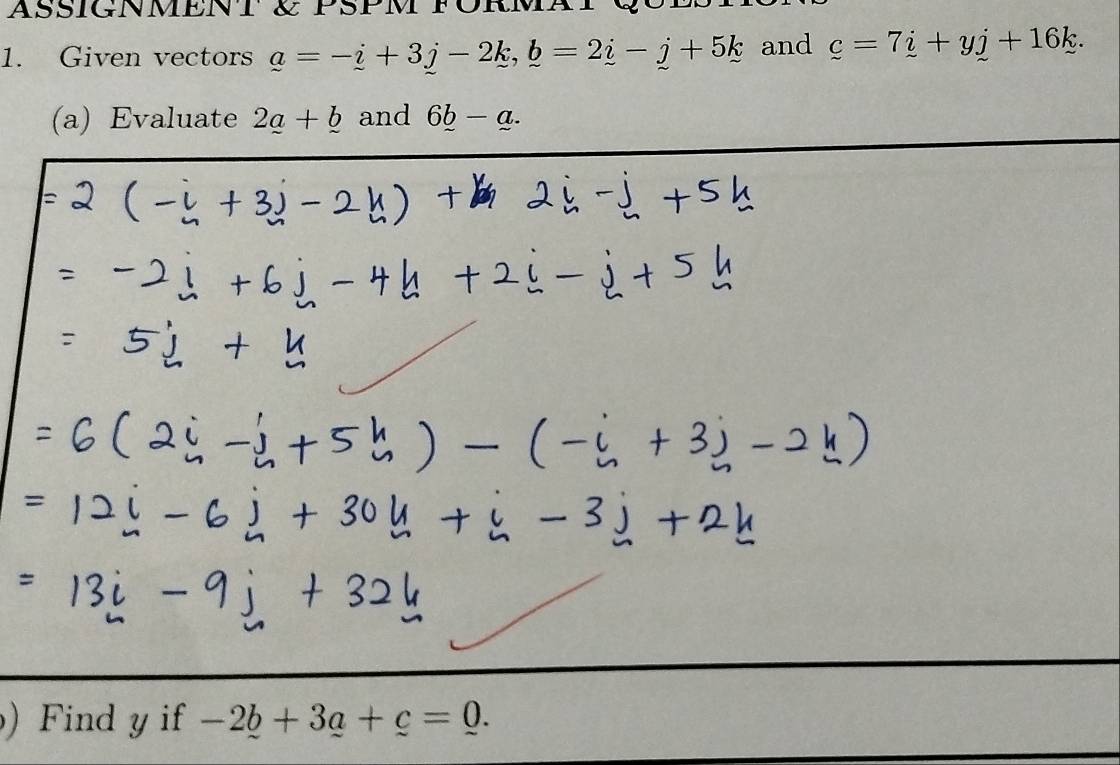 ASSIGNMENT & PSPM FORMAT QUESTIONS
1. Given vectors a = −i + 3j − 2k, b = 2i − j + 5k and c = 7i + yj + 16k.
(a) Evaluate 2a + b and 6b − a.
= 2 (-i + 3j - 2k) + 2i - j + 5k
= -2i + 6j - 4k + 2i - j + 5k
= 5j + k
= 6(2i - j + 5k) - (-i + 3j - 2k)
= 12i - 6j + 30k + i - 3j + 2k
= 13i - 9j + 32k
) Find y if −2b + 3a + c = 0.